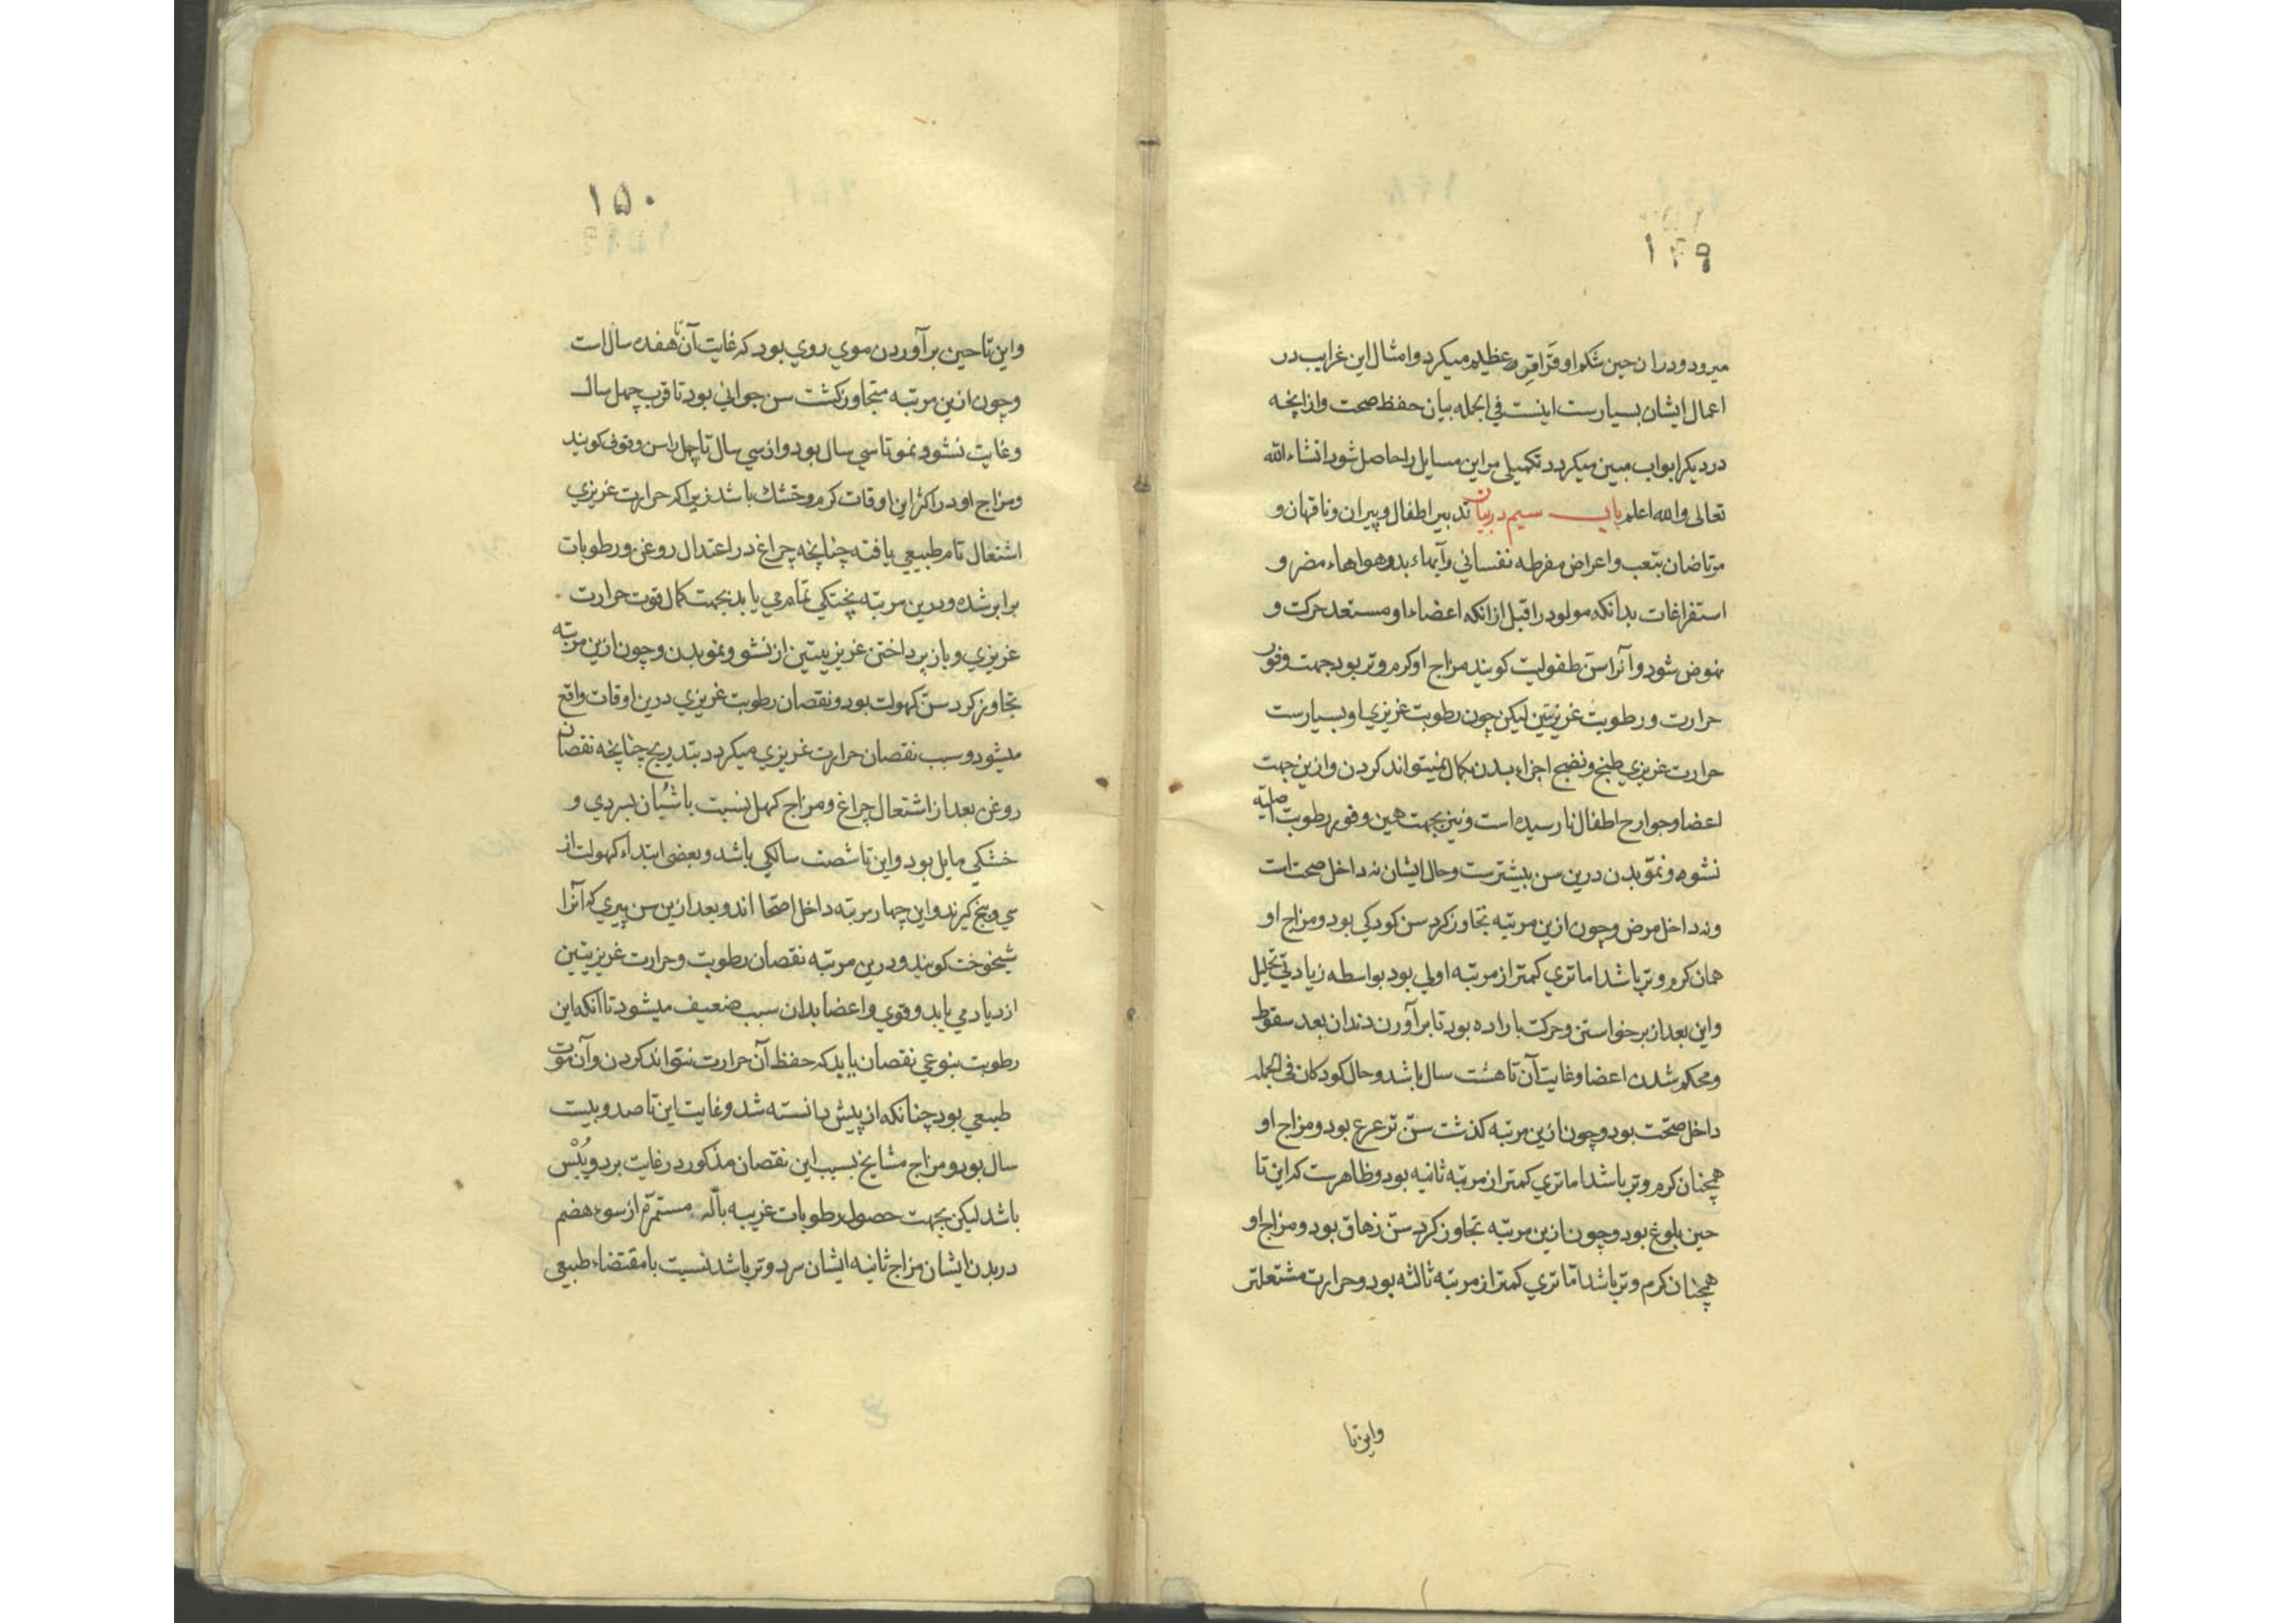 ۱۴۹
میرود و دران حین شکم او قراقر عظیم میکرد و امثال این غرایب در
اعمال ایشان بسیارست اینست فی الجمله بیان حفظ صحت و ازانچه
در دیکر ابواب مبین میکردد تکمیلی مر این مسایل را حاصل شود انشاء الله
تعالی والله اعلم باب سیم در بیان تدبیر اطفال و پیران و ناقهان و
مرتاضان بتعب و اعراض مفرطه نفسانی و آبهاء بد و هواهاء مضر و
استفراغات بدانکه مولود را قبل از انکه اعضاء او مستعد حرکت و
نهوض شود و آنرا سن طفولیت کویند مزاج او کرم و تر بود جهت وفور
حرارت و رطوبت غریزیتین لیکن چون رطوبت غریزی او بسیارست
حرارت غریزی طبخ و نضج اجزاء بدن بکمال نمیتواند کردن و ازین جهت
اعضا و جوارح اطفال نارسیده است و نیز بجهت همین وفور رطوبت اصلیه
نشوه و نمو بدن درین سن بیشترست و حال ایشان نه داخل صحتست
و نه داخل مرض و چون ازین مرتبه تجاوز کرد سن کودکی بود و مزاج او
همان کرم و تر باشد اما تری کمتر از مرتبه اولی بود بواسطه زیادتی تحلیل
و این بعد از برخواستن و حرکت باراده بود تا برآورن دندان بعد سقوط
و محکم شدن اعضا و غایت آن تا هشت سال باشد و حال کودکان فی الجمله
داخل صحت بود و چون ازین مرتبه کذشت سن ترعرع بود و مزاج او
همچنان کرم و تر باشد اما تری کمتر از مرتبه ثانیه بود و ظاهرست که این تا
حین بلوغ بود و چون ازین مرتبه تجاوز کرد سن زهاق بود و مزاج او
همچنان کرم و تر باشد اما تری کمتر از مرتبه ثالثه بود و حرارت مشتعلتر
و این تا
۱۵۰
و این تا حین برآوردن موی روی بود که غایت آن تا هفده سال است
و چون ازین مرتبه متجاوز کشت سن جوانی بود تا قرب چهل سال
و غایت نشو و نمو تا سی سال بود و از سی سال تا چهل را سن وقوف کویند
و مزاج او در اکثر این اوقات کرم و خشک باشد زیرا که حرارت غریزی
اشتعال تام طبیعی یافته چنانچه چراغ در اعتدال روغن و رطوبات
برابر شده و درین مرتبه پختکی تمام می یابد بجهت کمال قوت حرارت
غریزی و باز پرداختن غریزیتین از نشو و نمو بدن و چون ازین مرتبه
تجاوز کرد سن کهولت بود و نقصان رطوبت غریزی درین اوقات واقع
میشود و سبب نقصان حرارت غریزی میکردد بتدریج چنانچه نقصان
روغن بعد از اشتعال چراغ و مزاج کهل نسبت با شبان بسردی و
خشکی مایل بود و این تا شصت سالکی باشد و بعضی ابتداء کهولت از
سی و پنج کیرند و این چهار مرتبه داخل اصحا اند و بعد ازین سن پیری که آنرا
شیخوخت کویند و درین مرتبه نقصان رطوبت و حرارت غریزیتین
ازدیاد می یابد و قوی و اعضا بدان سبب ضعیف میشود تا آنکه این
رطوبت بنوعی نقصان یابد که حفظ آن حرارت نتواند کردن و آن موت
طبیعی بود چنانکه از پیش دانسته شد و غایت این تا صد و بیست
سال بود و مزاج مشایخ بسبب این نقصان مذکور در غایت برد و یبس
باشد لیکن بجهت حصول رطوبات غریبه بالّه مستمرّه از سوء هضم
در بدن ایشان مزاج ثانیه ایشان سرد و تر باشد نسبت با مقتضاء طبیعی